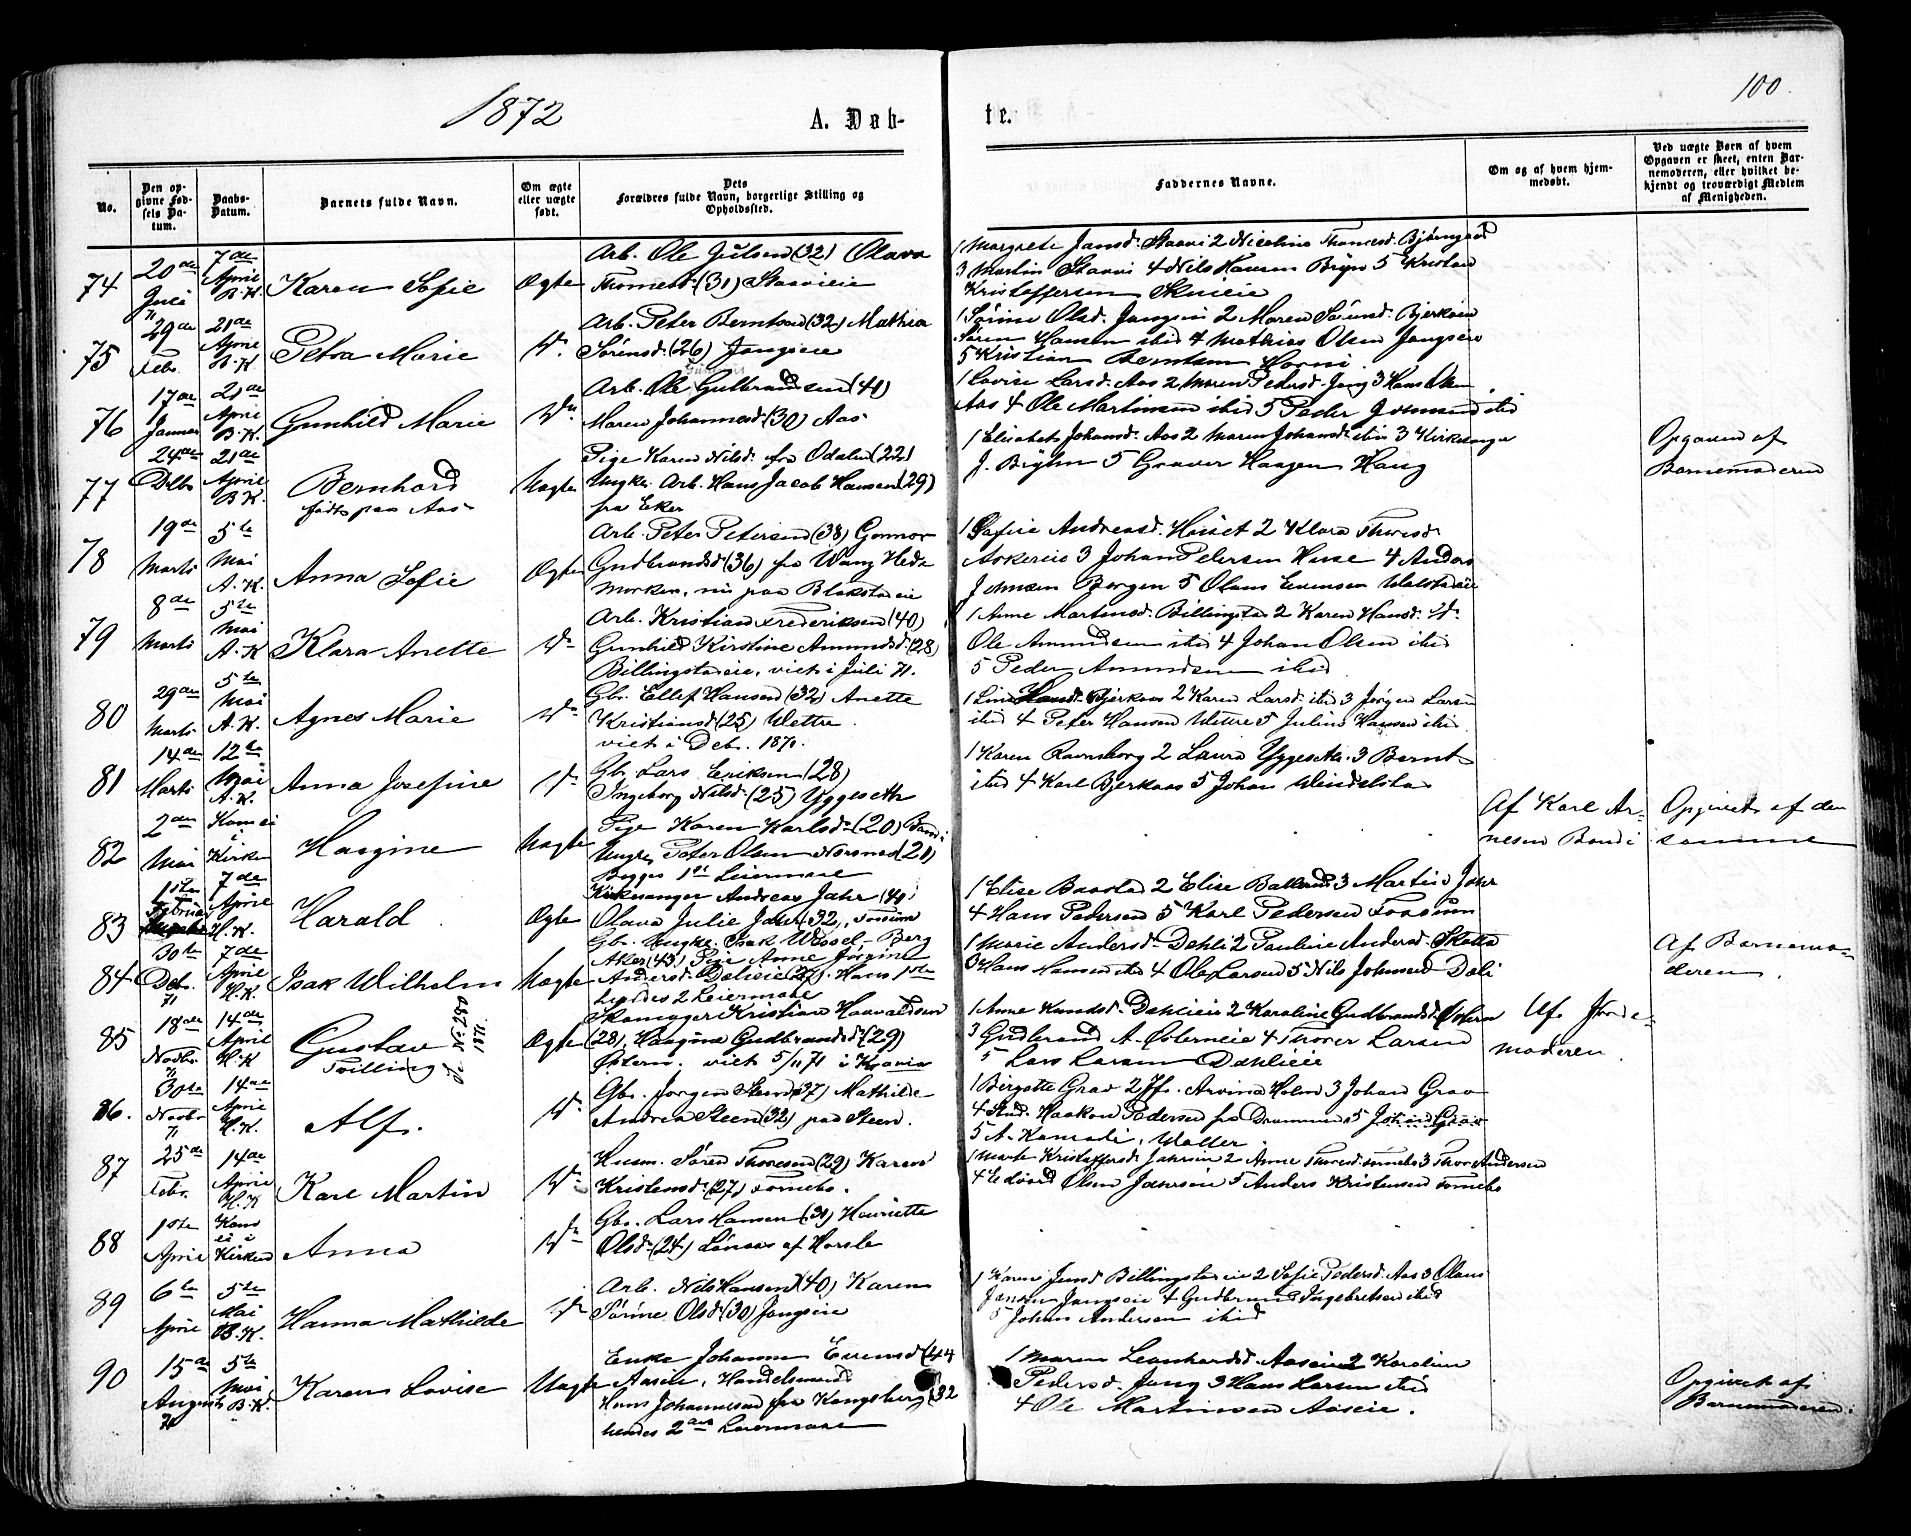 1872
A. Døb-
te.
100.
No.
Den op-
givne Fød-
sels Da-
tum.
Daabs-
Datum.
Barnets fulde Navn.
Om ægte
eller uægte
født.
Dets
Forældres fulde Navn, borgerlige Stilling og
Opholdssted.
Faddernes Navne.
Om og af hvem hjem-
medøbt.
Ved uægte Børn af hvem
Opgaven er skeet, enten Bar-
nemoderen, eller hvilket be-
kjendt og troværdigt Medlem
af Menigheden.
74
20de
Juli
71
7de
April
B.K.
Karen Sofie
Ægte
Arb. Ole Julsen (32) Olava
Thomesd. (31) Staavieie
1 Margrete Jansd. Staavi 2 Nicoline Thomesd. Bjørngaard
3 Martin Staavi 4 Nils Hansen Bryn 5 Kristian
Kristoffersen Skuieie
75
29de
Febr.
21de
April
B.K.
Petra Marie
Do.
Arb. Peter Berntsen (32) Mathea
Sørensd. (26) Jongseie
1 Sørine Olsd. Jongseie 2 Maren Bjerkeie
Søren Hansen ibid 4 Mathias Olsen Jongseie
5 Kristian Berntsen Horni.
76
17de
Januar
21de
April
B.K.
Gunhild Marie
Do.
Arb. Ole Gulbrandsen (41)
Maren Johannesd. (30) Aas
1 Lovise Larsd. Aas 2 Maren Pedersd. Jong 3 Hans Olsen
Aas 4 Ole Martinsen ibid 5 Peder ibid
77
24de
Debr
21de
April
B.K.
Bernhard
født paa Aas
Uægte
Pige Karen Nilsd. fra Odalen (22)
Ungk. Arb. Hans Jacob Hansen (29)
fra Eker
1 Elisabeth Johansd. Aas 2 Maren Johansd. ibid 3 Kirkesanger
J. Bryhn 5 Graver Haagen Haug
Opgaven af
Barnemoderen
78
19de
Marts
5te
Mai
A.K.
Anna Sofie
Ægte
Arb. Peter Petersen (38) Gunnor
Gudbrandsd (36) fra Wang Hede-
marken, nu paa Blakstadeie
1 Andreasd. Huset 2 Klara Thoresd.
Askereie 3 Johan Pedersen Huse 4 Anders
Johnsen Borgen 5 Olaus Evensen
79
8de
Marts
5te
Mai
A.K.
Klara Anette
Do
Arb. Kristian Frederiksen (40)
Gunhild Kirstine Amundsd. (28)
Billingstadeie, viet i Juli 71.
1 Anne Martinsd. Billingstad 2 Karen Hansd. do.
Ole Amundsen ibid 4 Johan Olsen ibid
5 Peder Amundsen ibid
80
29de
Marts
5te
Mai
A.K.
Agnes Marie
Do
Gbr. Ellef Hansen (32) Anette
Kristiansd (25) Wettre.
viet i Debr. 1871.
1 Line Hansd. Bjerkaas 2 Karen Larsd. ibid 3 Jørgen Larsen
ibid 4 Peter Hansen Wettre 5 Julius Hansen ibid
81
14de
Marts
12te
Mai
A.K.
Anna Josefine
Do
Gbr. Lars Eriksen (28)
Ingeborg Nilsd. (25) Yggeseth
1 Karen Ravnsborg 2 Laura Yggeseth 3 Bernt
ibid 4 Karl Bjerkaas 5 Johan Windelstad
82
2den
Mai
Kom ei
i
Kirken
Hargine
Uægte
Pige Karen Karlsd. (20) Bondi
Ungk. Peter Olsen (21)
Begges 1ste Leiermaal
Af Karl Ar-
nesen Bondi
Opgivet af den
samme
83
1ste
Februar
7de
April
H.K.
Harald
Ægte
Kirkesanger Andreas Jahr (40)
Olava Julie Jahr (32), Fossum
1 Elise Baastad 2 Elise Ballerud 3 Martin Jahr
4 Hans Pedersen 5 Karl Pedersen Fossum
84
30te
Debr.
71
7de
April
H.K.
Isak Wilhelm
Uægte
Gbr. Ungk. Isak Wessel, Berg
Aker (43) Pige Anne Jørgine
Andersd. Dælieie (27). Hans 1ste
hendes 2 Leiermaal
1 Marie Andersd. Dehli 2 Pauline Andersd. Skotta
3 Hans Hansen ibid 4 Ole Larsen 5 Nils Johnsen Dæli
Af Barnemo-
deren.
85
18de
Novbr.
71
14de
April
H.K.
Gustav
Tvilling
Ægte
Skomager Kristian Haavaldsen
(28), Haagine Gudbrandsd. (29)
Østern. viet 5/11 71 i
1 Anne Knudsd. Dehlieie 2 Karoline Gudbrandsd. Østern
3 Gudbrand A. Østerneie 4 Thorer Larsen
5 Lars Larsen Dæhlieie
Af Jorde-
moderen.
86.
30te
Novbr.
71
14de
April
H.K.
Alf.
Do.
Gbr. Jørgen Steen (37) Mathilde
Andrea Steen (32) paa Steen.
1 Birgitte Grav 2 Jfr. Arvina Holm 3 Johan Grav
4 Stud. Haakon Pedersen fra Drammen 5 Johan Grav
5 A. Walter.
87
25de
Febr.
14de
April
H.K.
Karl Martin
Do
Husm. Søren Thoresen (29) Karen
Kristensd. (27) Fornebo.
1 Marte Kristoffersd. 2 Anne Thoresd. Fornebo 3 Thor Andersen
4 Edvard Olsen 5 Anders Kristensen Fornebo
88
1ste
April
Kom
ei i
Kirken
Anna
Do
Gbr. Lars Hansen (30) Henriette
Olsd. (24) Lønaas af Harsle
89
6te
April
5te
Mai
B.K.
Hanna Mathilde
Do
Arb. Nils Hansen (40) Karen
Sørine Olsd. (30) Jongseie
1 Karen Jensd. Billingstadeie 2 Sofie Pedersd. Aas 3 Olaus
Jensen Jongseie 4 Gudbrand Ingebretsen ibid
5 Johan Andersen ibid
90
15de
August
71
5te
Mai
B.K.
Karen Lovise
Uægte
Enke Johanne Evensd (44
Aaseie, Handelsmand
Hans Johannesen fra Kongsberg (32
hendes 2det Leiermaal
1 Maren Leonhardsd. Aaseie 2 Karoline
Pedersd. Jong 3 Hans Larsen ibid
4 Ole Martinsen Aaseie.
Opgivet af
Barnemoderen.